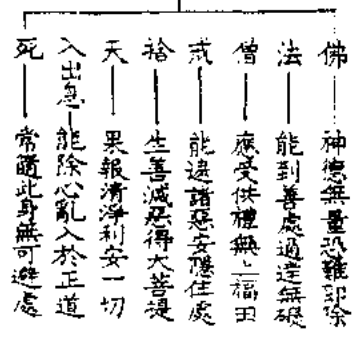 佛——神德無量恐難即除
法——能到善處過達無礙
僧——應受供禮無上福田
戒——能遮諸惡安隱住處
捨——生善滅惡得大菩提
天——果報清淨利安一切
入出息—能除心亂入於正道
死——常隨此身無可避處